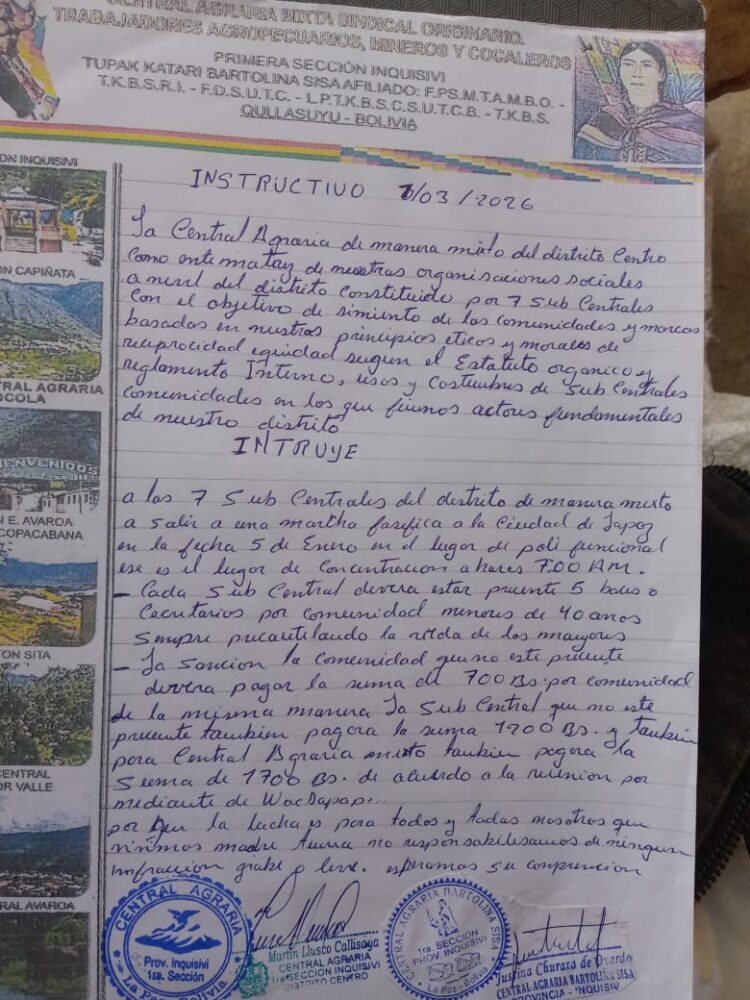 CENTRAL AGRARIA MIXTA SINDICAL ORIGINARIO.
TRABAJADORES AGROPECUARIOS, MINEROS Y COCALEROS
PRIMERA SECCIÓN INQUISIVI
TUPAK KATARI BARTOLINA SISA AFILIADO: F.P.S.M.T.A.M.B.O. -
T.K.B.S.R.I. - F.D.S.U.T.C. - L.P.T.K.B.S.C.S.U.T.C.B. - T.K.B.S.
QULLASUYU - BOLIVIA
INSTRUCTIVO 1/03/2026
La Central Agraria de manera mixto del distrito Centro
como ente matriz de nuestras organisaciones sociales
a nivel del distrito Constituido por 7 Sub Centrales
Con el objetivo de simiento de las comunidades y marcos
basadas en nuestros principios eticos y morales de
reciprocidad equidad sugun el Estatuto organico y
reglamento Interno, usos y costumbres de Sub Centrales
comunidades en los que fuimos actores fundamentales
de nuestro distrito
INTRUYE
a las 7 Sub Centrales del distrito de manera mixto
a salir a una martha fasifica a la Ciudad de Lapaz
en la fecha 5 de Enero en el lugar de poli funcional
ese es el lugar de Concentracion a hares 7:00 AM.
- Cada Sub Central devera estar precente 5 bases o
Cecretarios por comunidad menores de 40 anos
Sempre precautelando la vida de los mayores
- La sancion la comunidad que no este precente
devera pagar la suma de 700 Bs. por comunidad
de la misma manera La Sub Central que no este
precente tambien pagara la suma 1200 Bs. y tambien
para Central Agraria mixto tambien pagara la
Suma de 1700 Bs. de acuerdo a la reunion por
mediante de
por que la lucha es para todos y todas nosotros que
vivimos madre tierra no responsabilesamos de ningun
infraccion grabe o leve. esperamos su comprencion
ON INQUISIVI
ON CAPIÑATA
TRAL AGRARIA
SCOLA
BIENVENIDOS
N E. AVAROA
COPACABANA
ON SITA
CENTRAL
OR VALLE
RAL AVAROA
CENTRAL AGRARIA
Prov. Inquisivi
1ra. Sección
La Paz - Bolivia
Martin Llusco Callisaya
CENTRAL AGRARIA
1ra SECCIÓN INQUISIVI
DISTRITO CENTRO
CENTRAL AGRARIA BARTOLINA SISA
1ra. SECCIÓN
PROV. INQUISIVI
La Paz - Bolivia
Justina Churara de Ovardo
CENTRAL AGRARIA BARTOLINA SISA
PROVINCIA - INQUISIVI